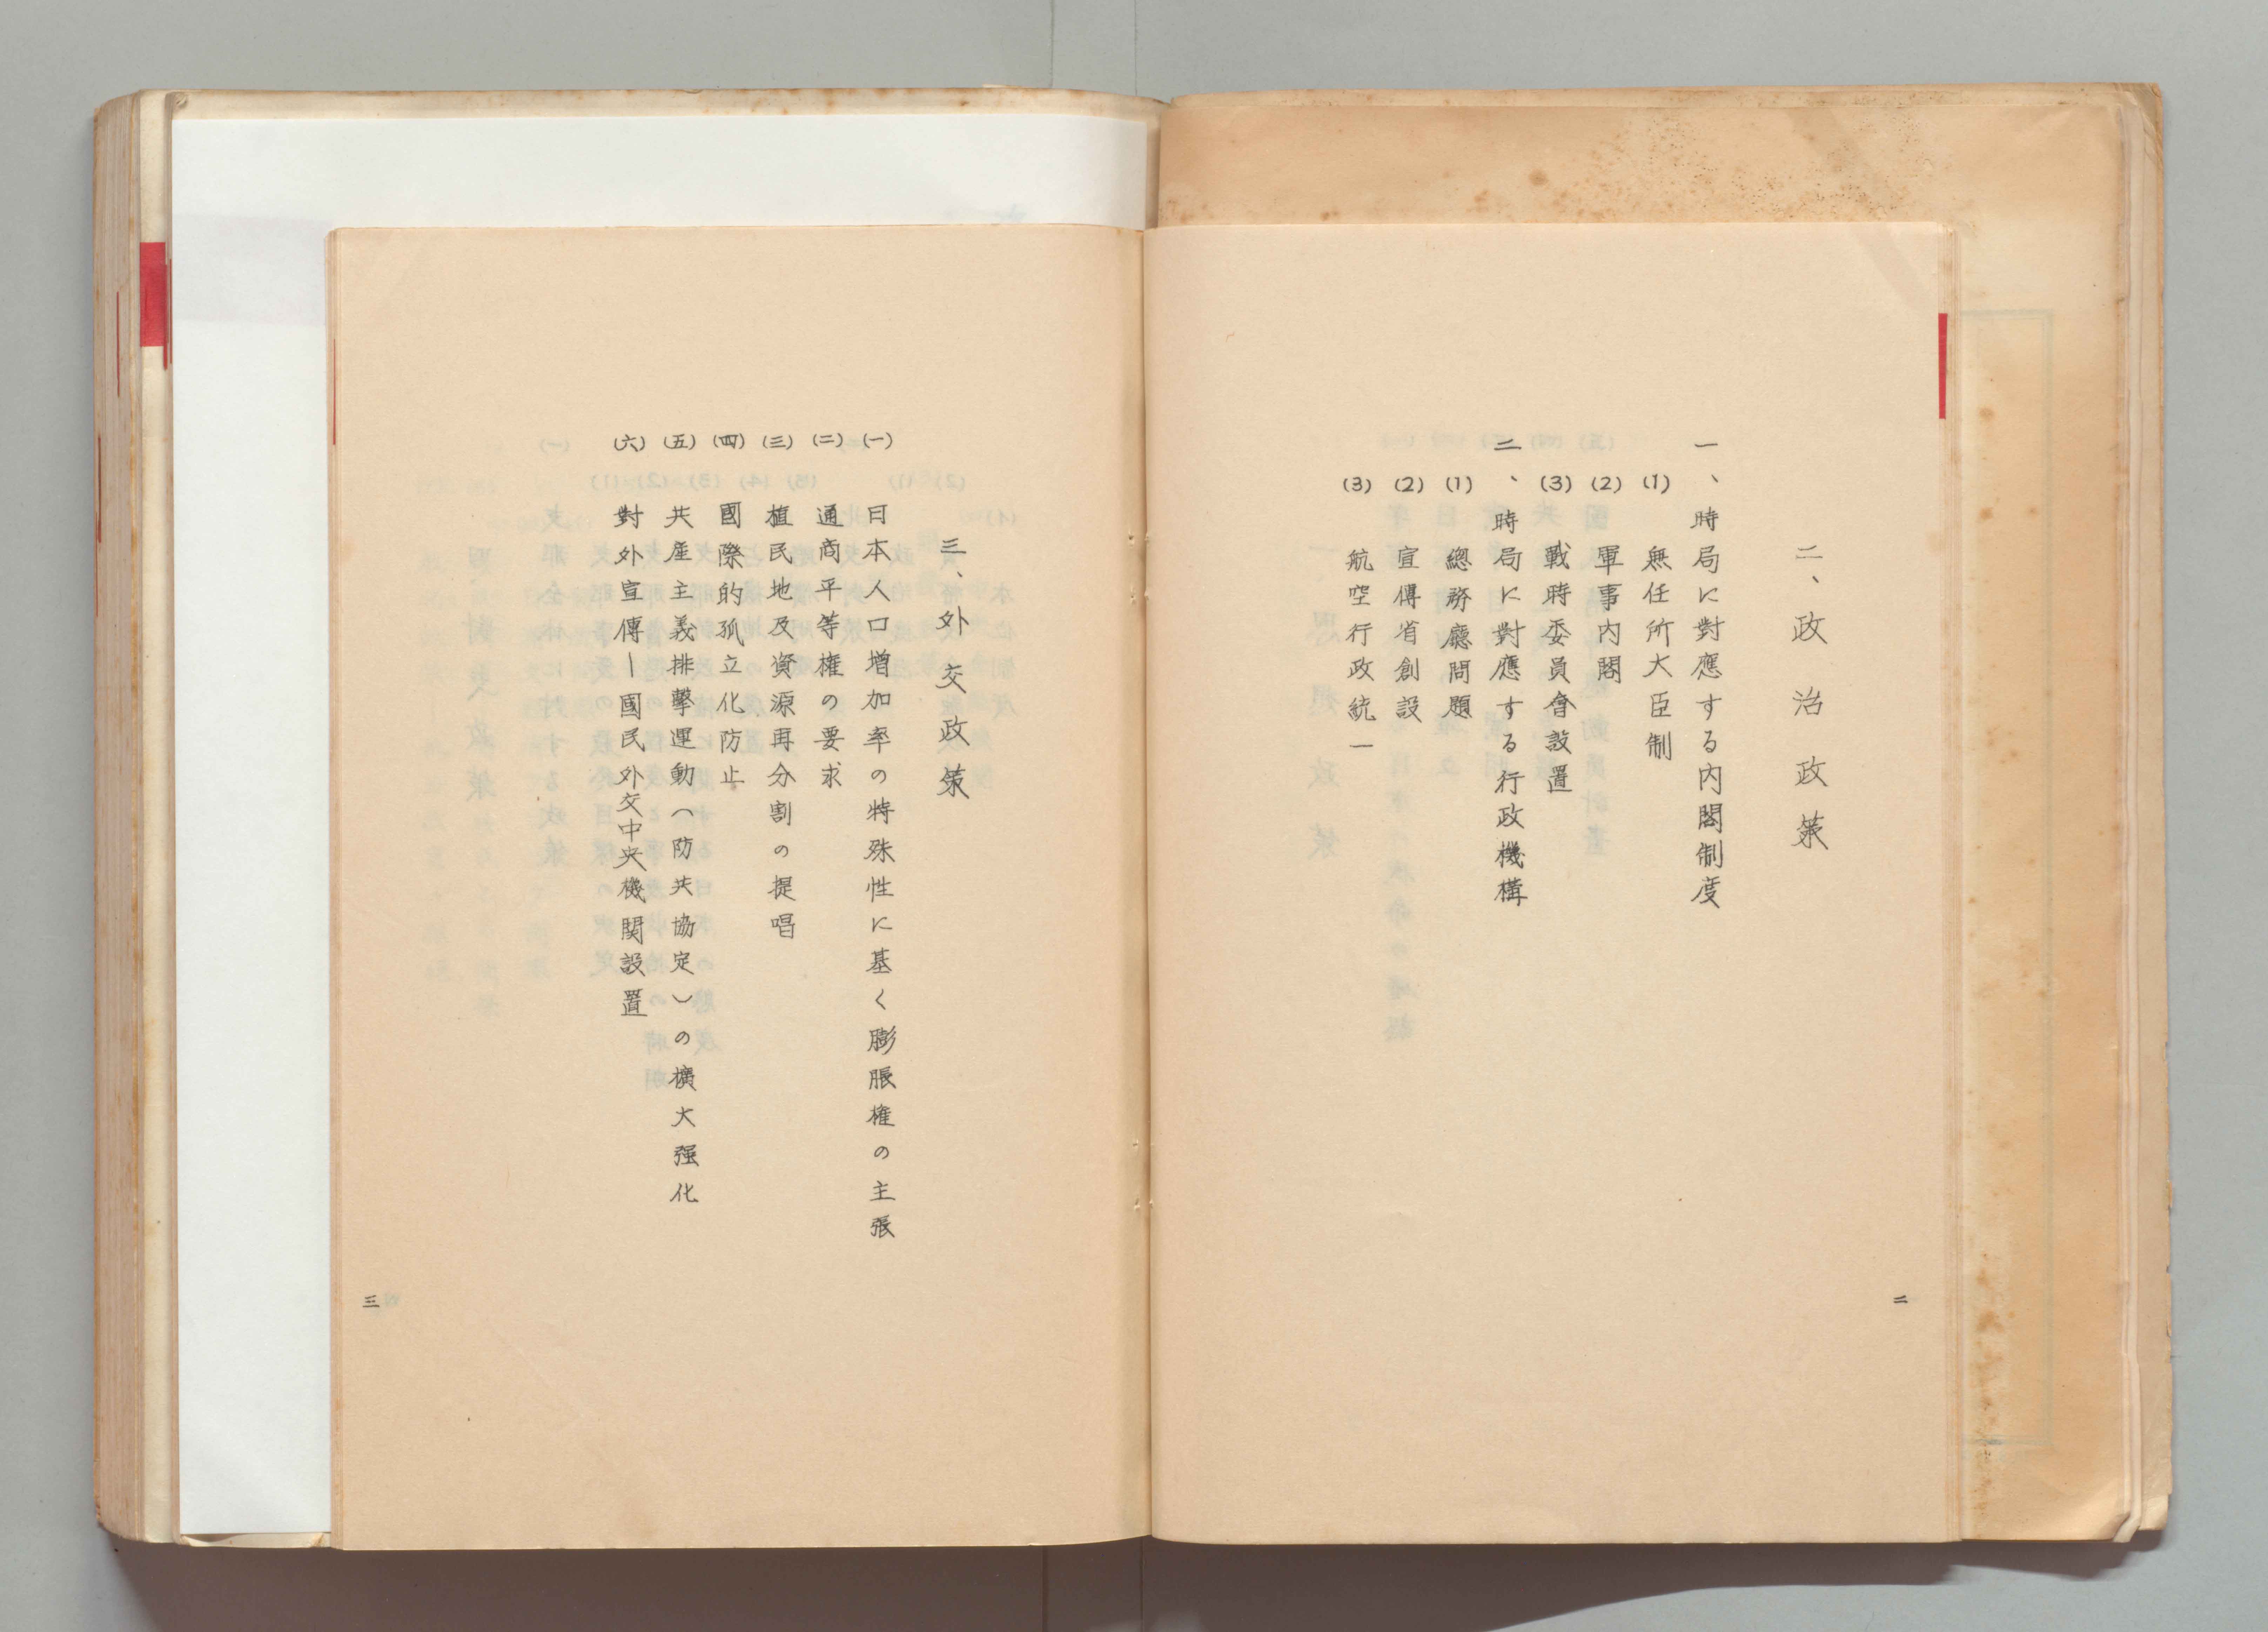 二、政治政策
一、時局に對應する内閣制度
(1) 無任所大臣制
(2) 軍事内閣
(3) 戰時委員會設置
二、時局に對應する行政機構
(1) 總務廳問題
(2) 宣傳省創設
(3) 航空行政統一
二
三、外交政策
(一) 日本人口増加率の特殊性に基く膨脹権の主張
(二) 通商平等権の要求
(三) 植民地及資源再分割の提唱
(四) 國際的孤立化防止
(五) 共産主義排撃運動(防共協定)の擴大强化
(六) 對外宣傳―國民外交中央機関設置
三